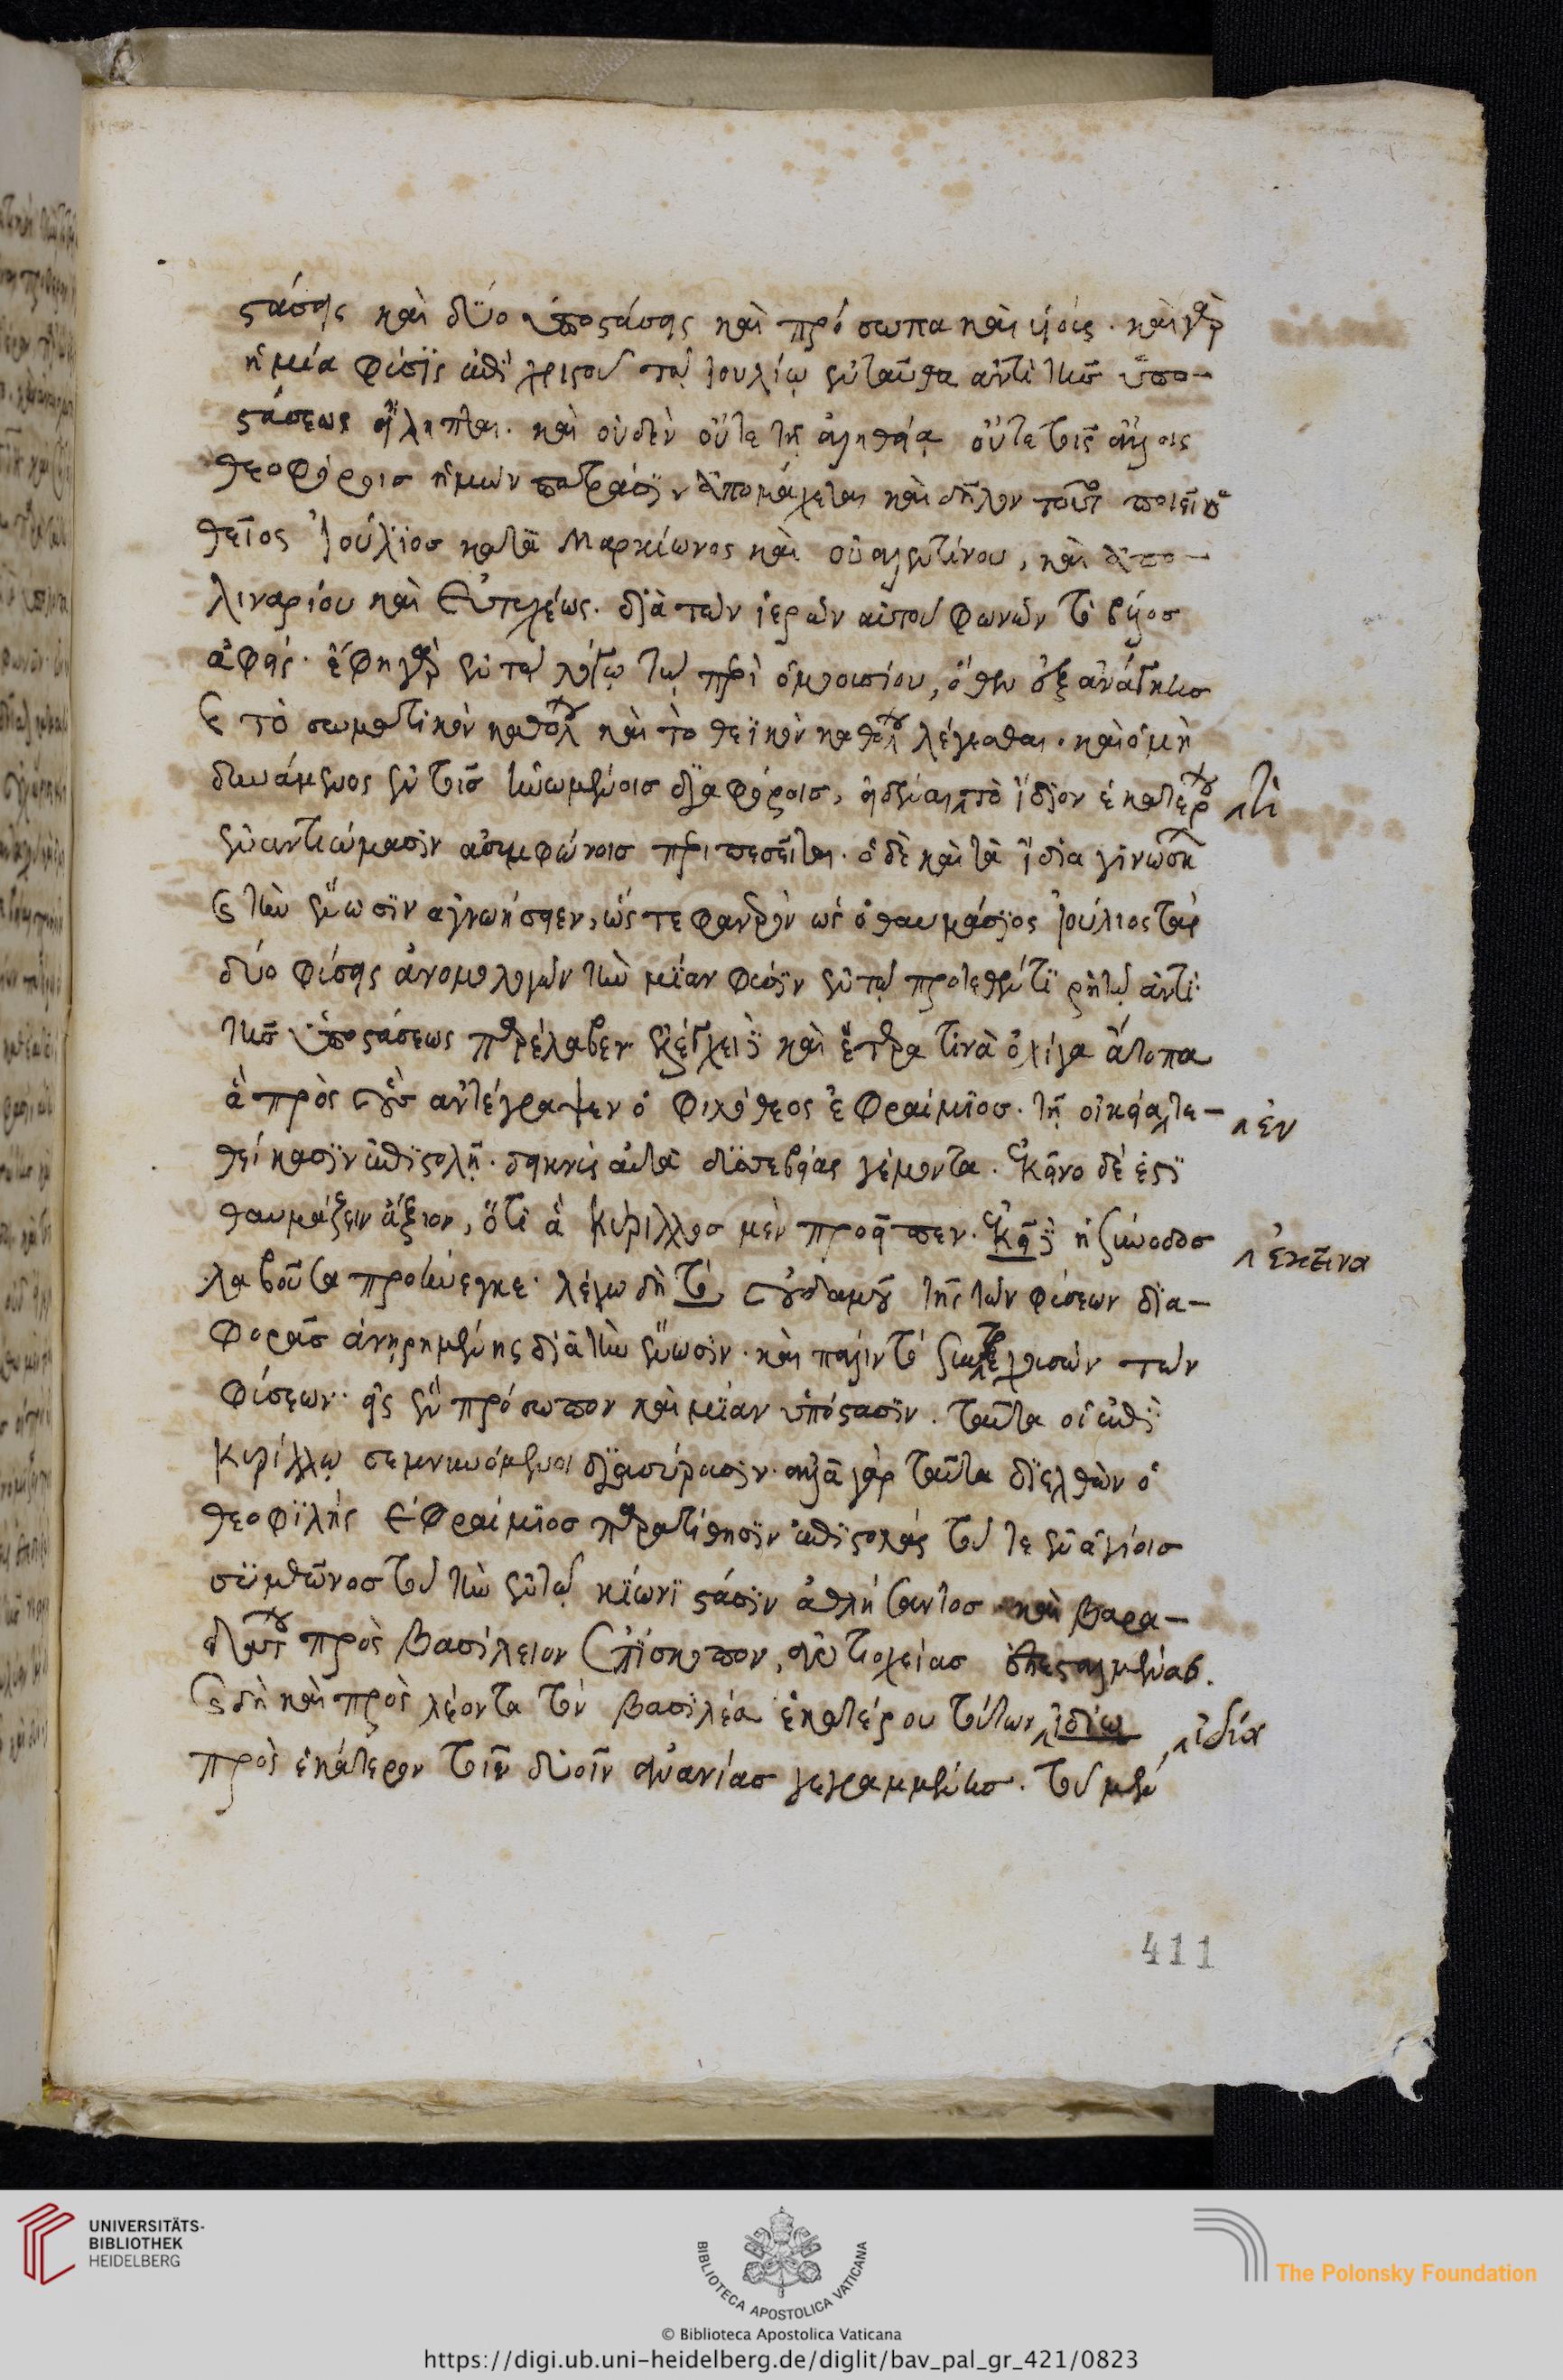 στάσεις καὶ δύο ὑποστάσεις καὶ πρόσωπα καὶ υἱούς. καὶ γὰρ
ἡ μία φύσις ἐπὶ χριστοῦ τῷ ἰουλίῳ ἐνταῦθα ἀντὶ τῆς ὑπο-
στάσεως εἴληπται. καὶ οὐδὲν οὔτε τῇ ἀληθείᾳ οὔτε τοῖς ἄλλοις
θεοφόροις ἡμῶν πατράσιν ἀπομάχεται καὶ δῆλον τοῦτο ποιεῖ ὁ
θεῖος Ἰούλιος κατὰ Μαρκίωνος καὶ οὐαλεντίνου, καὶ ἀπο-
λιναρίου καὶ Εὐτυχέως. διὰ τῶν ἱερῶν αὐτοῦ φωνῶν τὸ βέλος
ἀφείς. ἔφη γὰρ ἐν τῷ λόγῳ τῷ περὶ ὁμοουσίου, ὅθεν ἐξ ἀνάγκης
καὶ τὸ σωματικὸν καθόλου καὶ τὸ θεϊκὸν καθόλου λέγεσθαι. καὶ ὁ μὴ
δυνάμενος ἐν τοῖς ἑνωμένοις διαφόροις, εἰδέναι ‸ τὸ ἴδιον ἑκατέρου ‸ τὶ
ἐναντιώμασιν ἀσυμφώνοις περιπεσεῖται. ὁ δὲ καὶ τὰ ἴδια γινώσκ
καὶ τὴν ἕνωσιν ἀγνοήσειεν, ὥστε φανερὸν ὡς ὁ θαυμάσιος Ἰούλιος τὰς
δύο φύσεις ἀνομολογῶν τὴν μίαν φύσιν ἐν τῷ προτεθέντι ῥητῷ ἀντὶ
τῆς ὑποστάσεως παρέλαβεν. ἐλέγχει δὲ καὶ ἕτερα τινὰ ὀλίγα ἄτοπα
ἃ πρὸς οὓς ἀντέγραψεν ὁ φιλόθεος ἐφραίμιος. τῇ οἰκείᾳ ‸ τε- ‸ ἐν
θείκασιν ἐπιστολῇ. δεικνὺς αὐτὰ δυσσεβείας γέμοντα. Ἐκεῖνο δέ ἐστι
θαυμάζειν ἄξιον, ὅτι ἃ κύριλλος μὲν προεῖπεν. ἐκεῖ δὲ ἡ σύνοδος ‸ ἐκεῖνα
λαβοῦσα προήνεγκε. λέγω δὴ τό, οὐδαμοῦ τῆς τῶν φύσεων δια-
φορᾶς ἀνῃρημένης διὰ τὴν ἕνωσιν. καὶ πάλιν τό συντρεχουσῶν τῶν
φύσεων. εἰς ἓν πρόσωπον καὶ μίαν ὑπόστασιν. ταῦτα οἱ ἐπὶ
κυρίλλῳ σεμνυνόμενοι διασύρουσιν. ἀλλὰ γὰρ ταῦτα διελθὼν ὁ
θεοφιλὴς ἐφραίμιος παρατίθησιν ἐπιστολάς τοῦ τε ἐν ἁγίοις
συμεῶνος τοῦ τὴν ἐν τῷ κίονι στάσιν ἀθλήσαντος καὶ βαρα-
δάτου πρὸς βασίλειον ἐπίσκοπον, ἀντιοχείας ἐπεσταλμένας.
καὶ δὴ καὶ πρὸς λέοντα τὸν βασιλέα ἑκατέρου τούτων ‸ ἰδίως ‸ ἰδίᾳ
πρὸς ἑκάτερον τοῖν δυοῖν γεγραμμένης. τοῦ μὲν
411
UNIVERSITÄTS-
BIBLIOTHEK
HEIDELBERG
BIBLIOTECA APOSTOLICA VATICANA
The Polonsky Foundation
© Biblioteca Apostolica Vaticana
https://digi.ub.uni-heidelberg.de/diglit/bav_pal_gr_421/0823